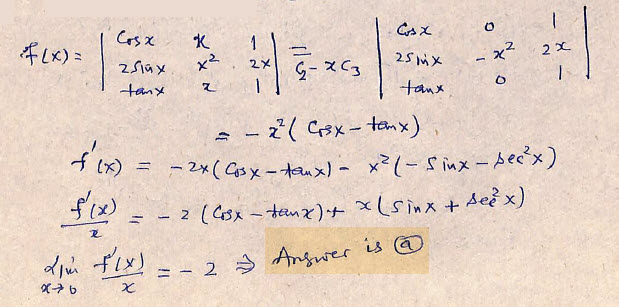 f(x) = | Cos x x 1 | = | Cos x 0 1 |
| 2 sin x x² 2x | C₂ - x C₃ | 2 sin x - x² 2x |
| tan x x 1 | | tan x 0 1 |
= - x² ( Cos x - tan x )
f'(x) = - 2x ( Cos x - tan x ) - x² ( - Sin x - sec² x )
f'(x)/x = - 2 ( Cos x - tan x ) + x ( Sin x + sec² x )
lim x→0 f'(x)/x = - 2 ⇒ Answer is ⓐ